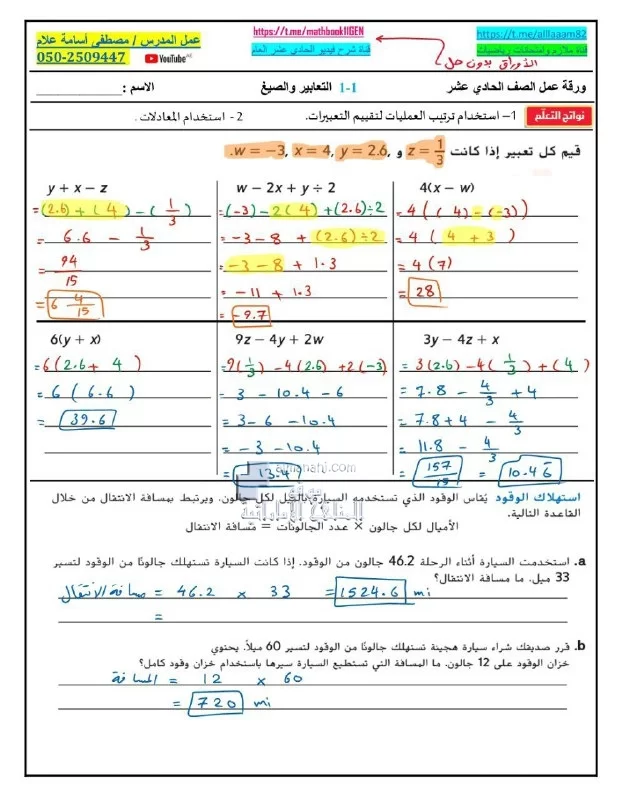 عمل المدرس / مصطفى أسامة علام
050-2509447 YouTube AE
https://t.me/mathbook11GEN
قناة شرح فيديو الحادي عشر العام
https://t.me/alllaaam82
قناة ملازم وامتحانات رياضيات
الأوراق بدون حل
ورقة عمل الصف الحادي عشر 1-1 التعابير والصيغ الاسم : ____________
نواتج التعلم 1- استخدام ترتيب العمليات لتقييم التعبيرات. 2- استخدام المعادلات .
قيم كل تعبير إذا كانت w = −3, x = 4, y = 2.6, و z = 1/3.
y + x − z
= (2.6) + ( 4 ) − ( 1/3 )
= 6.6 − 1/3
= 94/15
= 6 4/15
w − 2x + y ÷ 2
= (-3) − 2( 4 ) + (2.6) ÷ 2
= −3 − 8 + (2.6) ÷ 2
= −3 − 8 + 1.3
= − 11 + 1.3
= −9.7
4(x − w)
= 4 ( ( 4 ) − (-3) )
= 4 ( 4 + 3 )
= 4 (7)
= 28
6(y + x)
= 6 ( 2.6 + 4 )
= 6 ( 6.6 )
= 39.6
9z − 4y + 2w
= 9( 1/3 ) − 4 (2.6) + 2 (-3)
= 3 − 10.4 − 6
= 3 − 6 − 10.4
= − 3 − 10.4
= − 13.4
3y − 4z + x
= 3 (2.6) − 4( 1/3 ) + ( 4 )
= 7.8 − 4/3 + 4
= 7.8 + 4 − 4/3
= 11.8 − 4/3
= 157/15 = 10.46̄
almanahj.com
المناهج الإماراتية
استهلاك الوقود يُقاس الوقود الذي تستخدمه السيارة بالميل لكل جالون. ويرتبط بمسافة الانتقال من خلال
القاعدة التالية.
الأميال لكل جالون × عدد الجالونات = مسافة الانتقال
a. استخدمت السيارة أثناء الرحلة 46.2 جالون من الوقود. إذا كانت السيارة تستهلك جالونًا من الوقود لتسير
33 ميل. ما مسافة الانتقال؟
مسافة الانتقال = 46.2 × 33 = 1524.6 mi
=
b. قرر صديقك شراء سيارة هجينة تستهلك جالونًا من الوقود لتسير 60 ميلاً. يحتوي
خزان الوقود على 12 جالون. ما المسافة التي تستطيع السيارة سيرها باستخدام خزان وقود كامل؟
المسافة = 12 × 60
= 720 mi